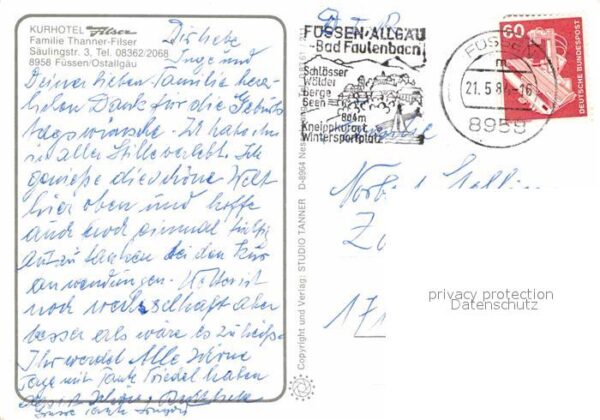 KURHOTEL Filser
Familie Thanner-Filser
Säulingstr. 3, Tel. 08362/2068
8958 Füssen/Ostallgäu
Dir liebe
Inge und
Deiner lieben Familie herz-
lichen Dank für die Geburts
tagswünsche. Ich habe ihn
in aller Stille verlebt. Ich
genieße die schöne Welt
hier oben und hoffe
auch noch einmal
aufzutanken bei den Kur
anwendungen. Wetter ist
noch wechselhaft aber
besser als wäre es zu heiß.
Ihr werdet Alle schöne
Tage mit Tante Friedel haben
FÜSSEN-ALLGÄU
-Bad Faulenbach
Schlösser
Wälder
Berge
Seen
804m
Kneippkurort
Wintersportplatz
FÜSSEN
m
21.5.8 -16
8959
60
DEUTSCHE BUNDESPOST
Copyright und Verlag: STUDIO TANNER D-8964 Nes
privacy protection
Datenschutz